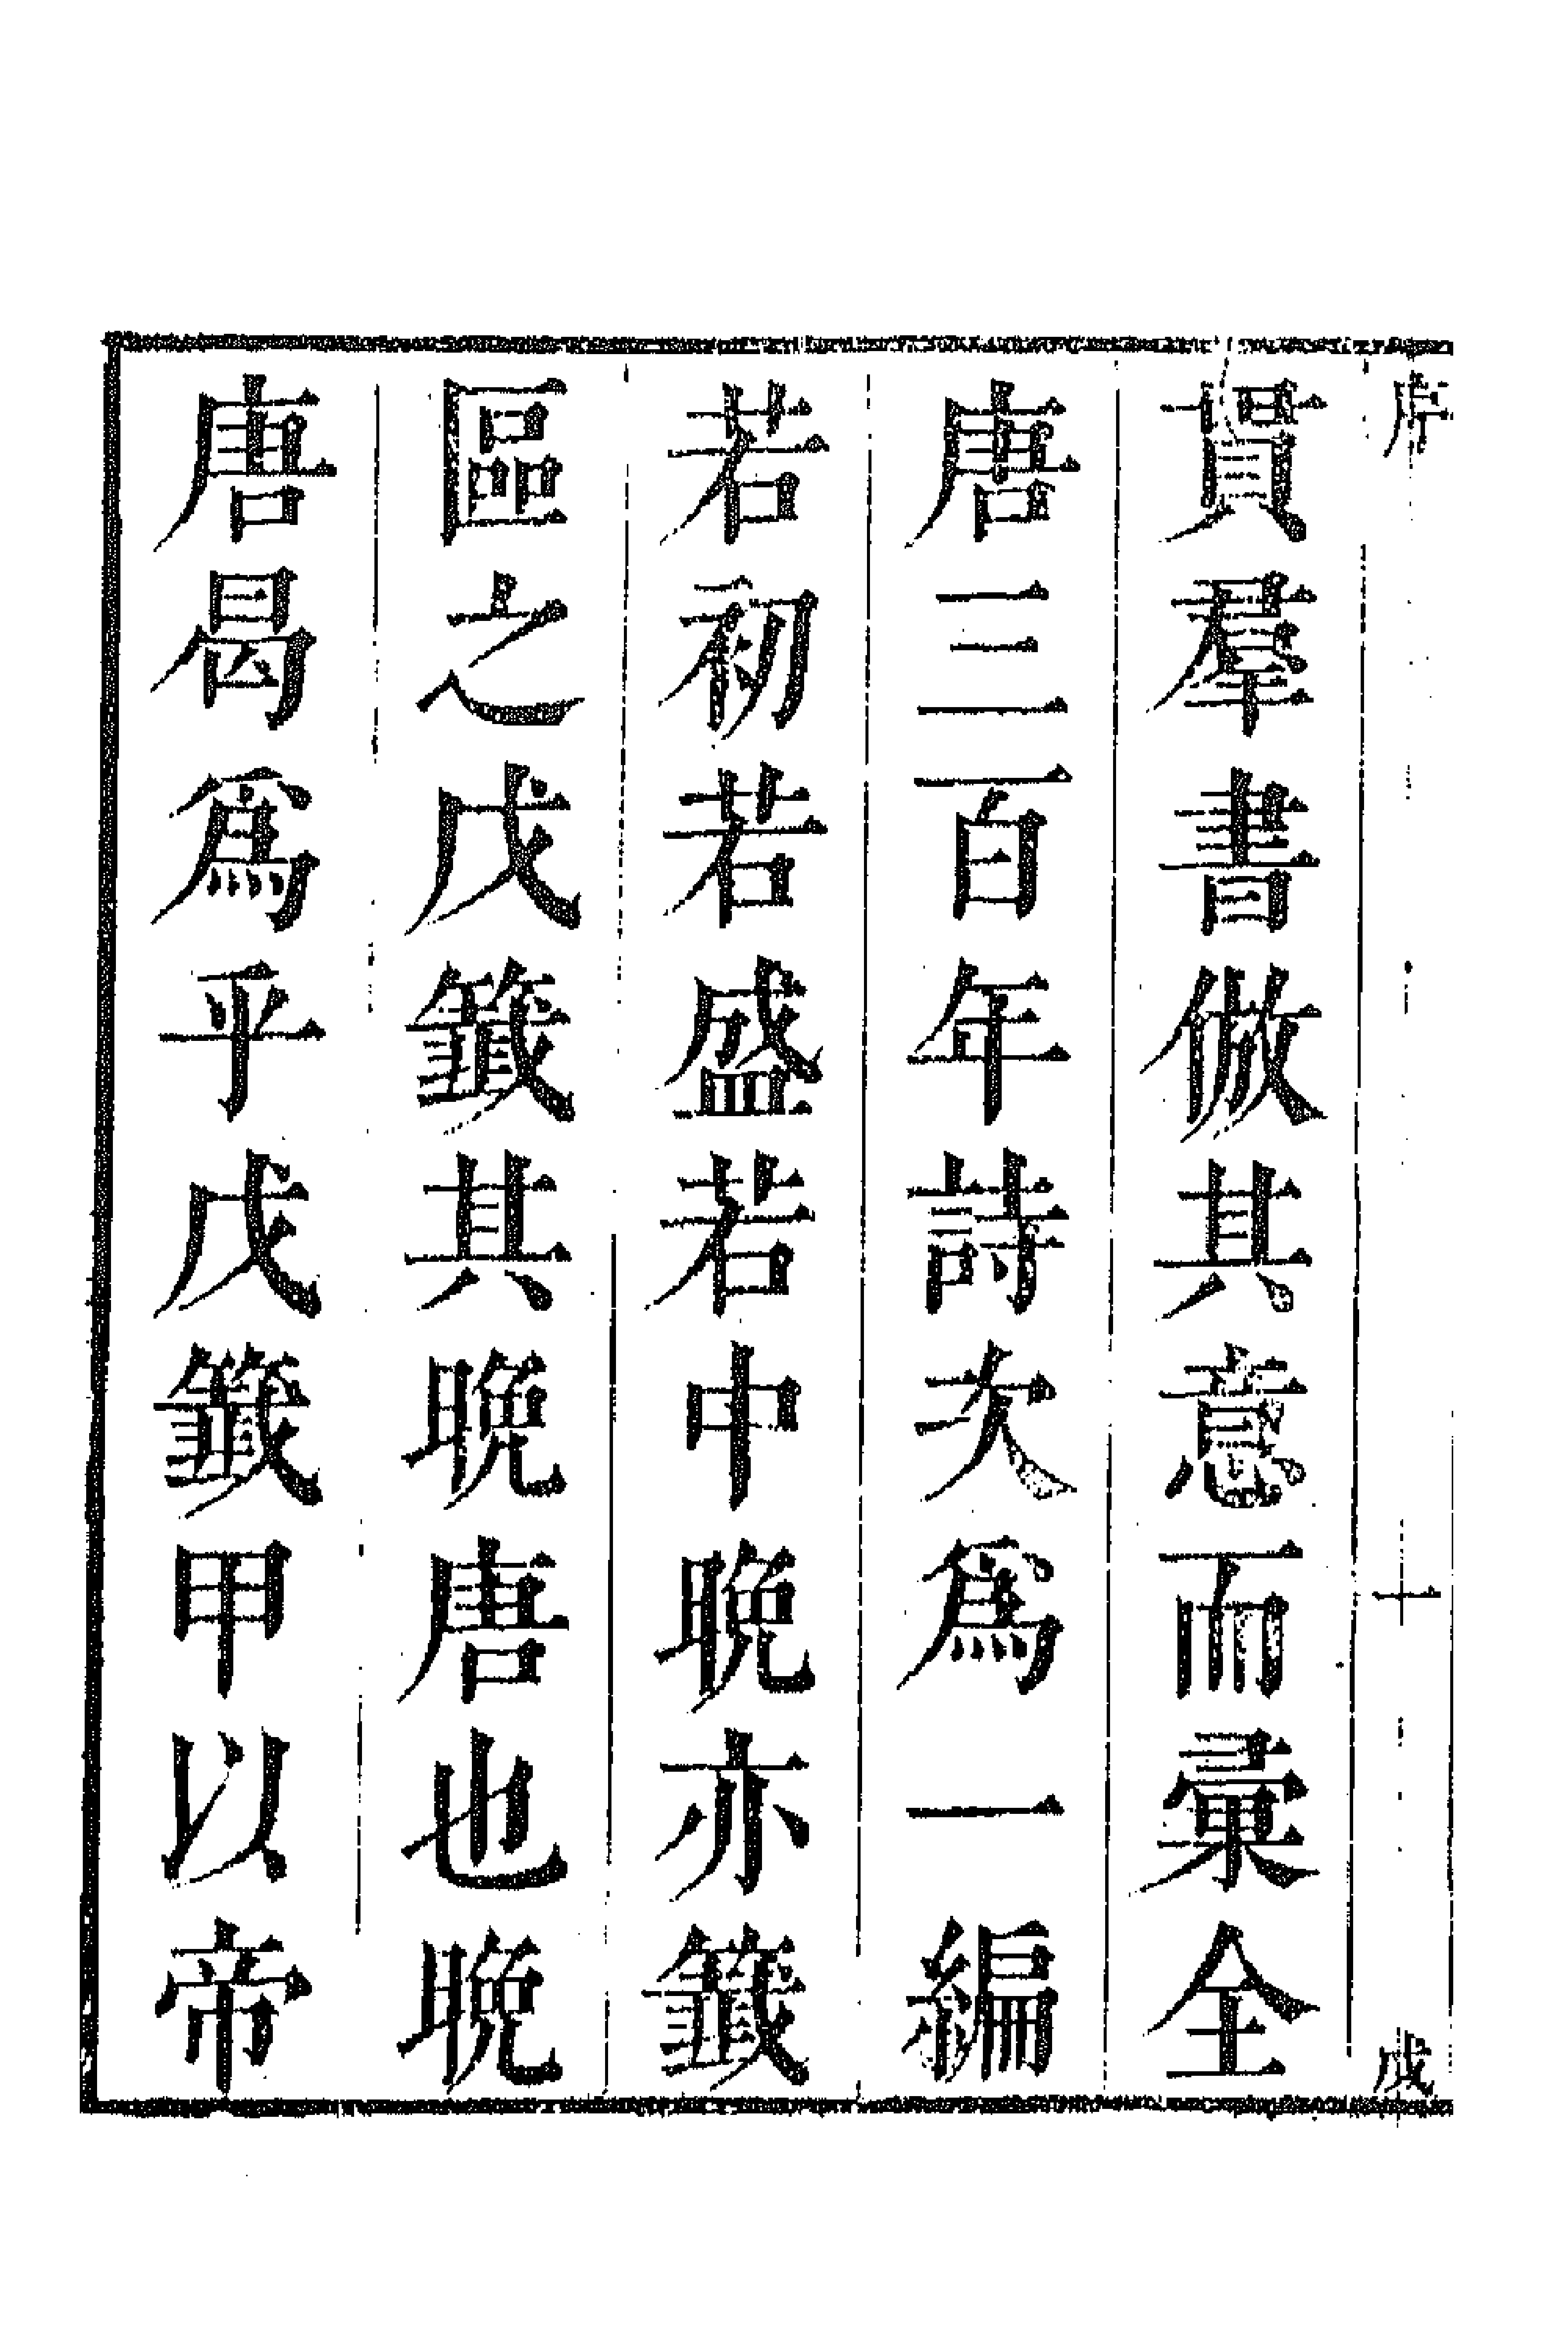 序 十 戊
貫羣書倣其意而彙全
唐三百年詩大爲一編
若初若盛若中晩亦籤
區之戊籤其晩唐也晩
唐曷爲乎戊籤甲以帝